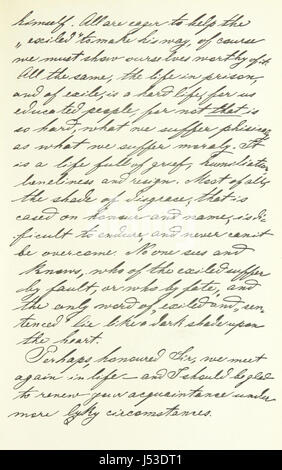 himself. All are eager to help the
„exciled" to make his way, of course
we must show ourselves worthy of it.
All the same, the life in prison,
and of excile, is a hard life, for us
educated people, for not that is
so hard, what we suffer phisicaly
as what we suffer moraly. It
is a life full of greef, humiliation
loneliness and resign. Most of all,
the shade of disgrace, that is
cased on honour and name, is dif-
ficult to endure, and never can it
be overcome. No one sees and
knows, who of the exciled suffer
by fault, or who by fate, and
the only word of „exciled" and „sen-
tenced" lie like a dark shade upon
the heart.
Perhaps honoured Sir, we meet
again in life – and I should be glad
to renew your acquaintance under
more lyky circomstances.
alamy stock photo
J53DT1